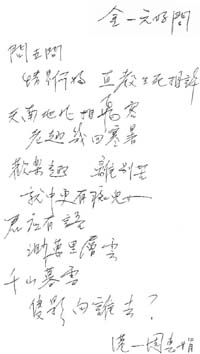 金一元好問
問世間
情是何物 直教生死相許
天南地北雙飛客
老翅幾回寒暑
歡樂趣 離別苦
就中更有痴兒女
君應有語
渺萬里層雲
千山暮雪
隻影向誰去？
港一周